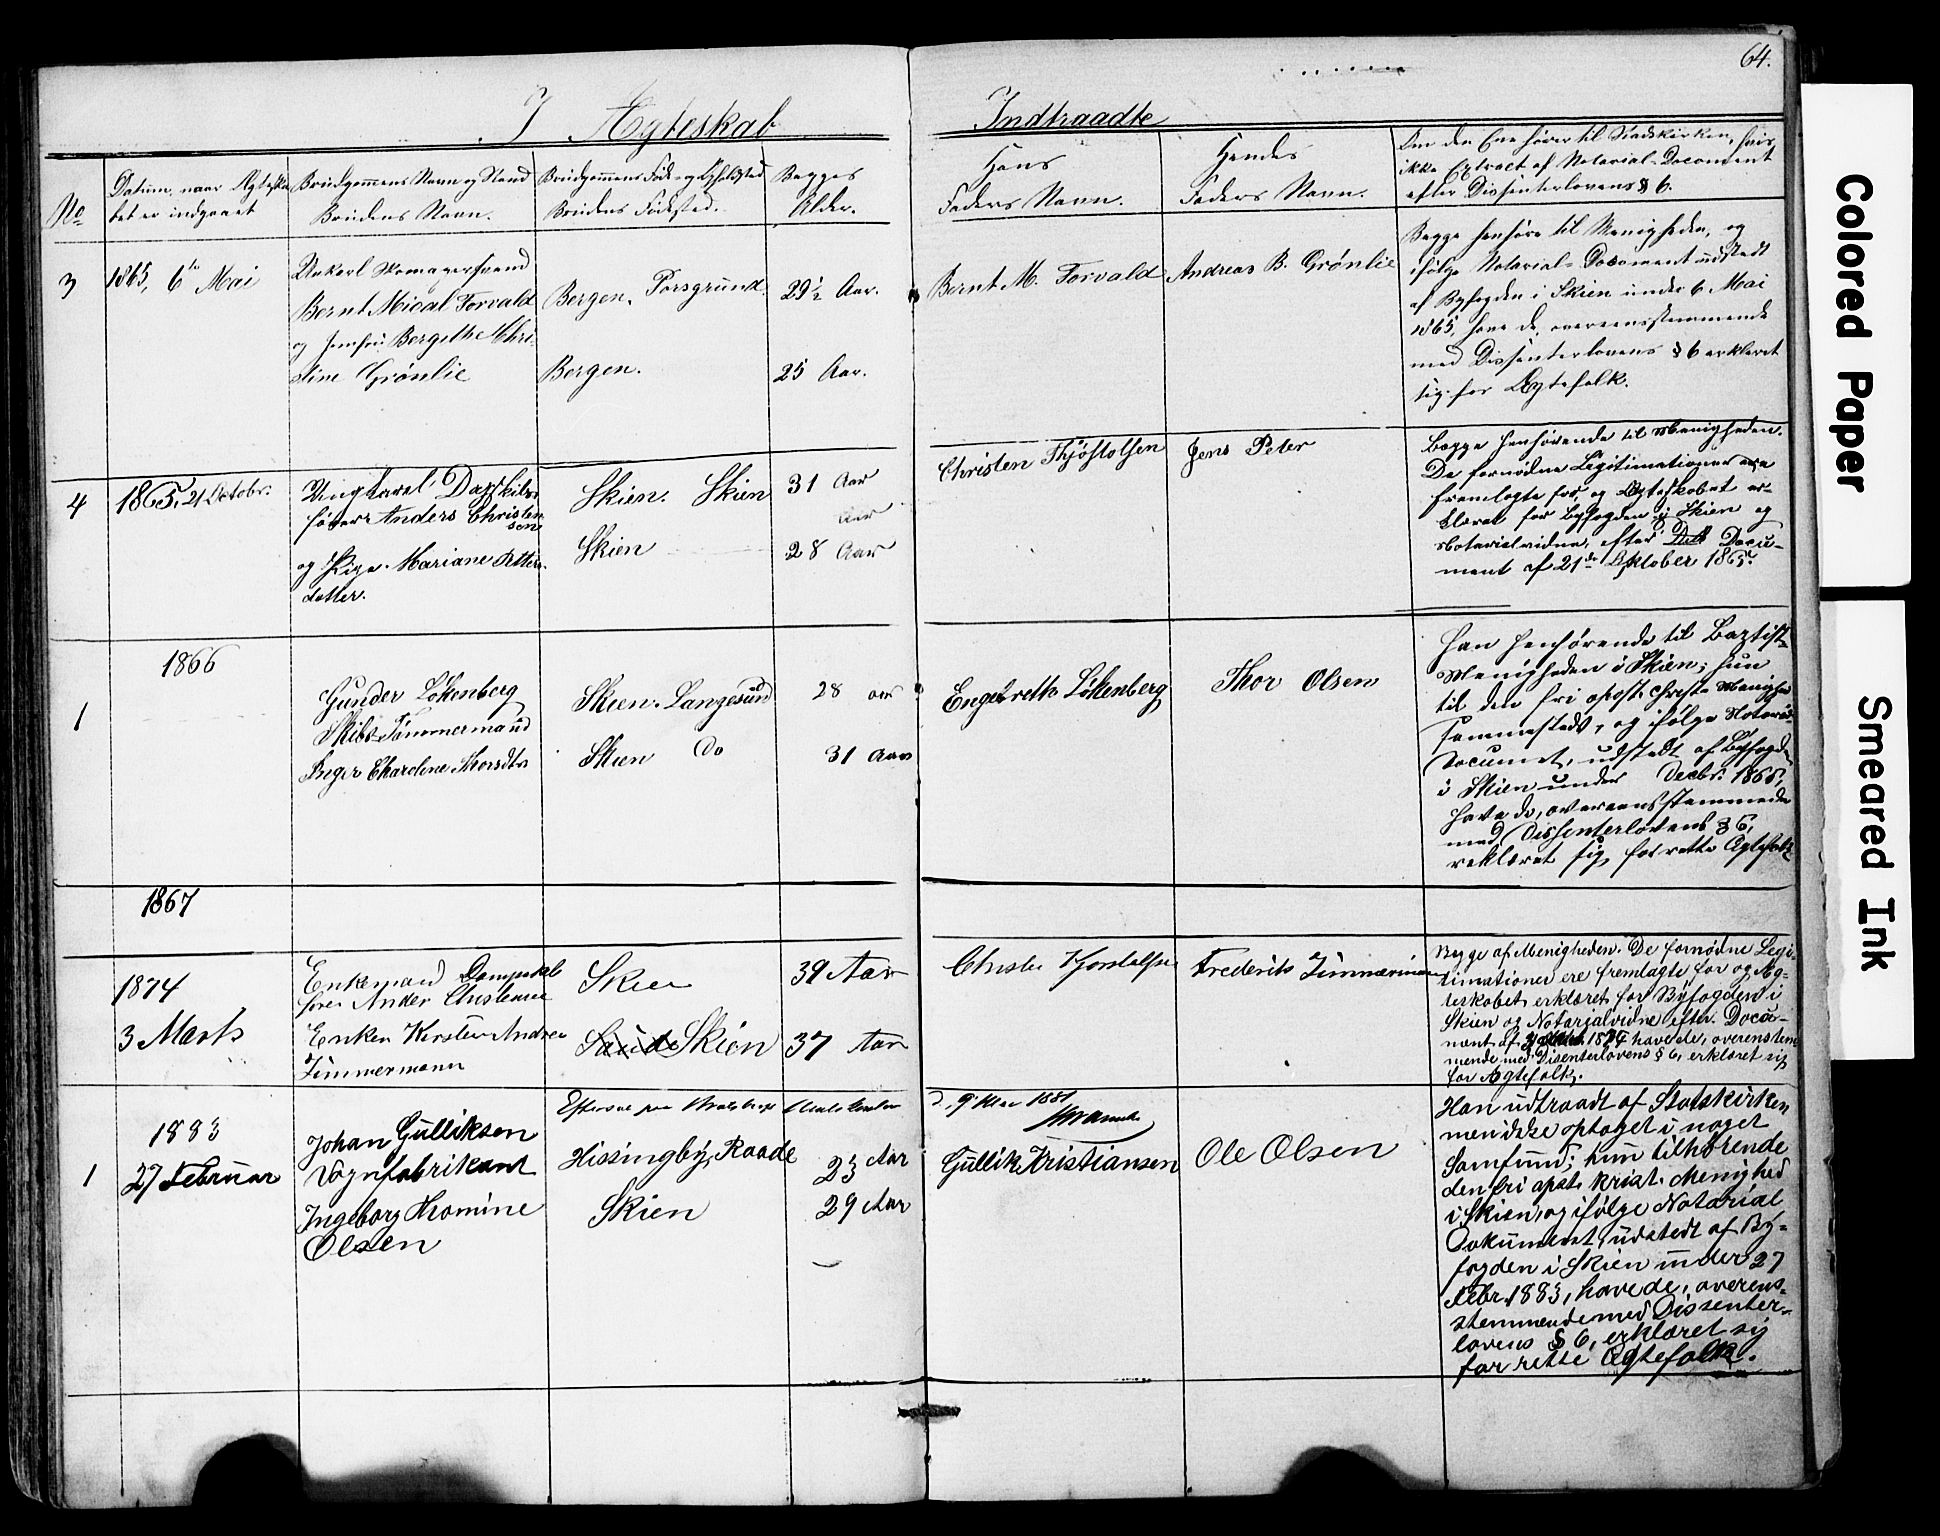 64.
I Ægteskab Indtraadte
No
Datum, naar Ægteska-
bet er indgaaet
Brudgommens Navn og Stand
Brudens Navn.
Brudgommens Føde- og Opholdsted
Brudens Fødested.
Begges
Alder.
Hans
Faders Navn.
Hendes
Faders Navn.
Om den Ene hører til Statskirken, hvis
ikke Extract af Notarial-Document
efter Dissenterlovens § 6.
3
1865, 6te Mai
Ungkarl Skomagersvend
Bernt Mical Torvald
og Jomfru Bergithe Chri-
stine Grönlie
Bergen. Porsgrund.
Bergen.
29½ Aar.
25 Aar.
Bernt M. Torvald
Andreas B. Grönlie
Begge henhøre til Menigheden, og
ifølge Notarial-Document udstedt
af Byfogden i Skien under 6 Mai
1865, have de, overensstemmende
med Dissenterlovens § 6 erklæret
sig for Ægtefolk.
4
1865, 21 Octobr.
Ungkarl Dampskibs-
fører Anders Christen-
sen
og Pige Mariane Petters-
datter.
Skien. Skien
Skien
31 Aar
Aar
28 Aar
Christen Thjøstolsen
Jens Peter
Begge henhørende til Menigheden.
De fornødne Legitimationer ere
fremlagte for, og Ægteskabet er-
klæret for Byfogden i Skien og
Notarialvidne, efter Docu-
ment af 21de Oktober 1865.
1866
1
Gunder Løkenberg
Skibs-Tömmermand
Inger Thorsdtr
Skien. Langesund
Skien Do
28 aar
31 Aar
Engelreth Løkenberg
Thor Olsen
Han henhørende til Baptist-
Menigheden i Skien; hun
til den fri apost. christe Menighed
sammesteds, og ifølge Notarial-
Document, udstedt af Byfogden
i Skien under Decbr. 1865,
have de, overensstemmende
med Dissenterlovens § 6,
erklæret sig for rette Ægtefolk
1867
1874
3 Marts
Enkemand Dampskibs
fører Anders Christensen
Enken Kirsten Andrea
Timmermann
Skien
Skien
39 Aar
37 Aar
Christen
Frederik Timmermann
Begge af Menigheden. De fornødne Legi-
timationer ere fremlagte for og Æg-
teskabet erklæret for Byfogden i
Skien og Notarialvidne efter Docu-
ment af 3 Marts 1874 have de, overenstem
mende med Disenterlovens § 6, erklæret sig
for Ægtefolk.
1
1883
27 Februar
Johan Gulliksen
Vognfabrikant
Ingeborg Hromine
Olsen
Hissingby, Raade
Skien
23 Aar
29 Aar
Gullik Kristiansen
Ole Olsen
Han udtraadt af Statskirken
men ikke optaget i noget
Samfund; hun tilhørende
den fri apst. krist. Menighed
i Skien, og ifølge Notarial
Dokument, udstedt af By-
fogden i Skien under 27
Febr. 1883, have de, overens-
stemmende med Dissenter-
lovens § 6, erklæret sig
for rette Ægtefolk.
Colored Paper
Smeared Ink